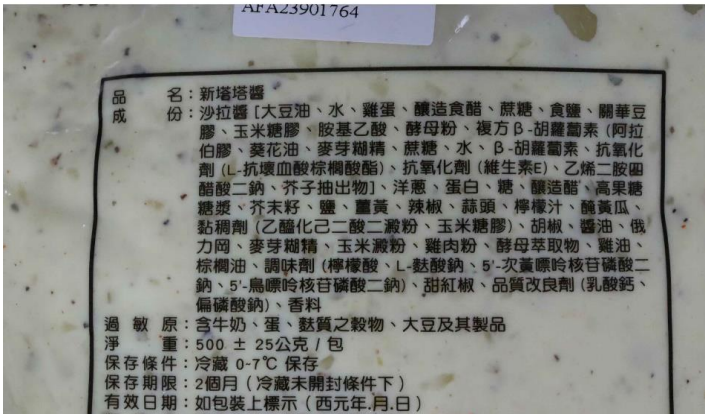 AFA23901764
品名：新塔塔醬
成份：沙拉醬 [大豆油、水、雞蛋、釀造食醋、蔗糖、食鹽、關華豆
膠、玉米糖膠、胺基乙酸、酵母粉、複方β-胡蘿蔔素 (阿拉
伯膠、葵花油、麥芽糊精、蔗糖、水、β-胡蘿蔔素、抗氧化
劑 (L-抗壞血酸棕櫚酸酯)、抗氧化劑 (維生素E)、乙烯二胺四
醋酸二鈉、芥子抽出物]、洋蔥、蛋白、糖、釀造醋、高果糖
糖漿、芥末籽、鹽、薑黃、辣椒、蒜頭、檸檬汁、醃黃瓜、
黏稠劑 (乙醯化己二酸二澱粉、玉米糖膠)、胡椒、醬油、俄
力岡、麥芽糊精、玉米澱粉、雞肉粉、酵母萃取物、雞油、
棕櫚油、調味劑 (檸檬酸、L-麩酸鈉、5'-次黃嘌呤核苷磷酸二
鈉、5'-鳥嘌呤核苷磷酸二鈉)、甜紅椒、品質改良劑 (乳酸鈣、
偏磷酸鈉)、香料
過敏原：含牛奶、蛋、麩質之穀物、大豆及其製品
淨重：500 ± 25公克 / 包
保存條件：冷藏 0-7℃ 保存
保存期限：2個月 (冷藏未開封條件下)
有效日期：如包裝上標示 (西元年.月.日)